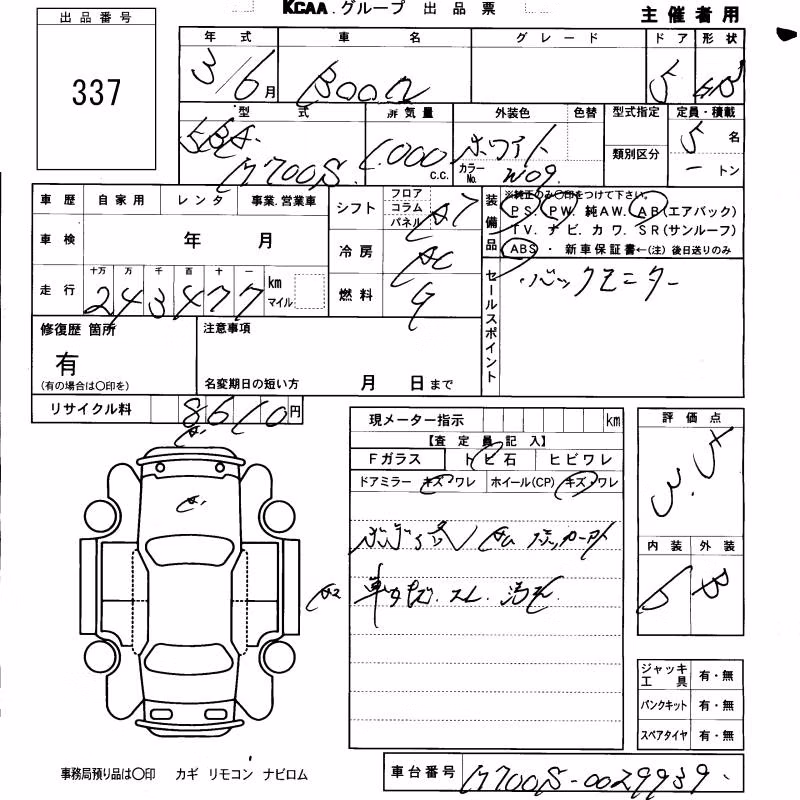 KCAA.グループ 出品票
主催者用
出品番号
337
年式 車名 グレード ドア 形状
3/6月 BOON 5 HB
型式 排気量 外装色 色替 型式指定 定員・積載
5BA- 1000 c.c. ホワイト 5 名
M700S カラーNo. W09 類別区分 ー トン
車歴 自家用 レンタ 事業.営業車
車検 年 月
走行 十万 万 千 百 十 一
243477 km マイル
シフト フロア コラム パネル AT
冷房 AC
燃料 G
装備品 ※純正のみ〇印をつけて下さい。
PS. PW. 純AW. AB(エアバック)
TV. ナビ. カワ. SR(サンルーフ)
ABS ・ 新車保証書←(注) 後日送りのみ
セールスポイント
・バックモニター
修復歴 箇所
有
(有の場合は〇印を)
注意事項
名変期日の短い方 月 日まで
リサイクル料 8610円
現メーター指示 km
【査定員記入】
Fガラス トビ石 ヒビワレ
ドアミラー キズ・ワレ ホイール(CP) キズ・ワレ
評価点
3.5
内装 外装
B
ジャッキ工具 有・無
パンクキット 有・無
スペアタイヤ 有・無
事務局預り品は〇印 カギ リモコン ナビロム
車台番号 M700S-0029939